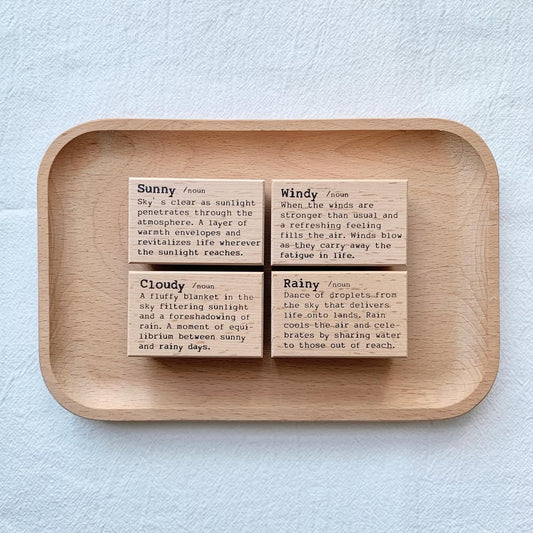 Sunny /noun
Sky`s clear as sunlight
penetrates through the
atmosphere. A layer of
warmth envelopes and
revitalizes life wherever
the sunlight reaches.
Windy /noun
When the winds are
stronger than usual and
a refreshing feeling
fills the air. Winds blow
as they carry away the
fatigue in life.
Cloudy /noun
A fluffy blanket in the
sky filtering sunlight
and a foreshadowing of
rain. A moment of equi-
librium between sunny
and rainy days.
Rainy /noun
Dance of droplets from
the sky that delivers
life onto lands. Rain
cools the air and cele-
brates by sharing water
to those out of reach.